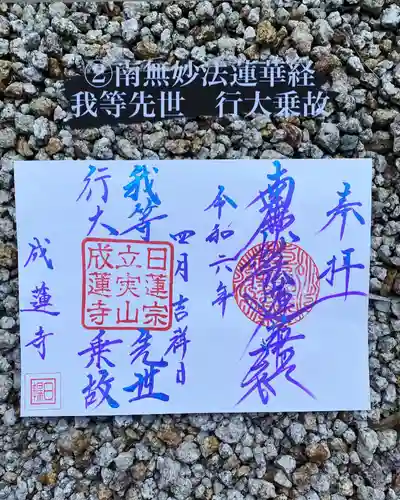 ②南無妙法蓮華経
我等先世 行大乗故
奉拝
南無妙法蓮華経
令和六年
四月吉祥日
我等先世
行大乗故
日蓮宗
立実山
成蓮寺
成蓮寺